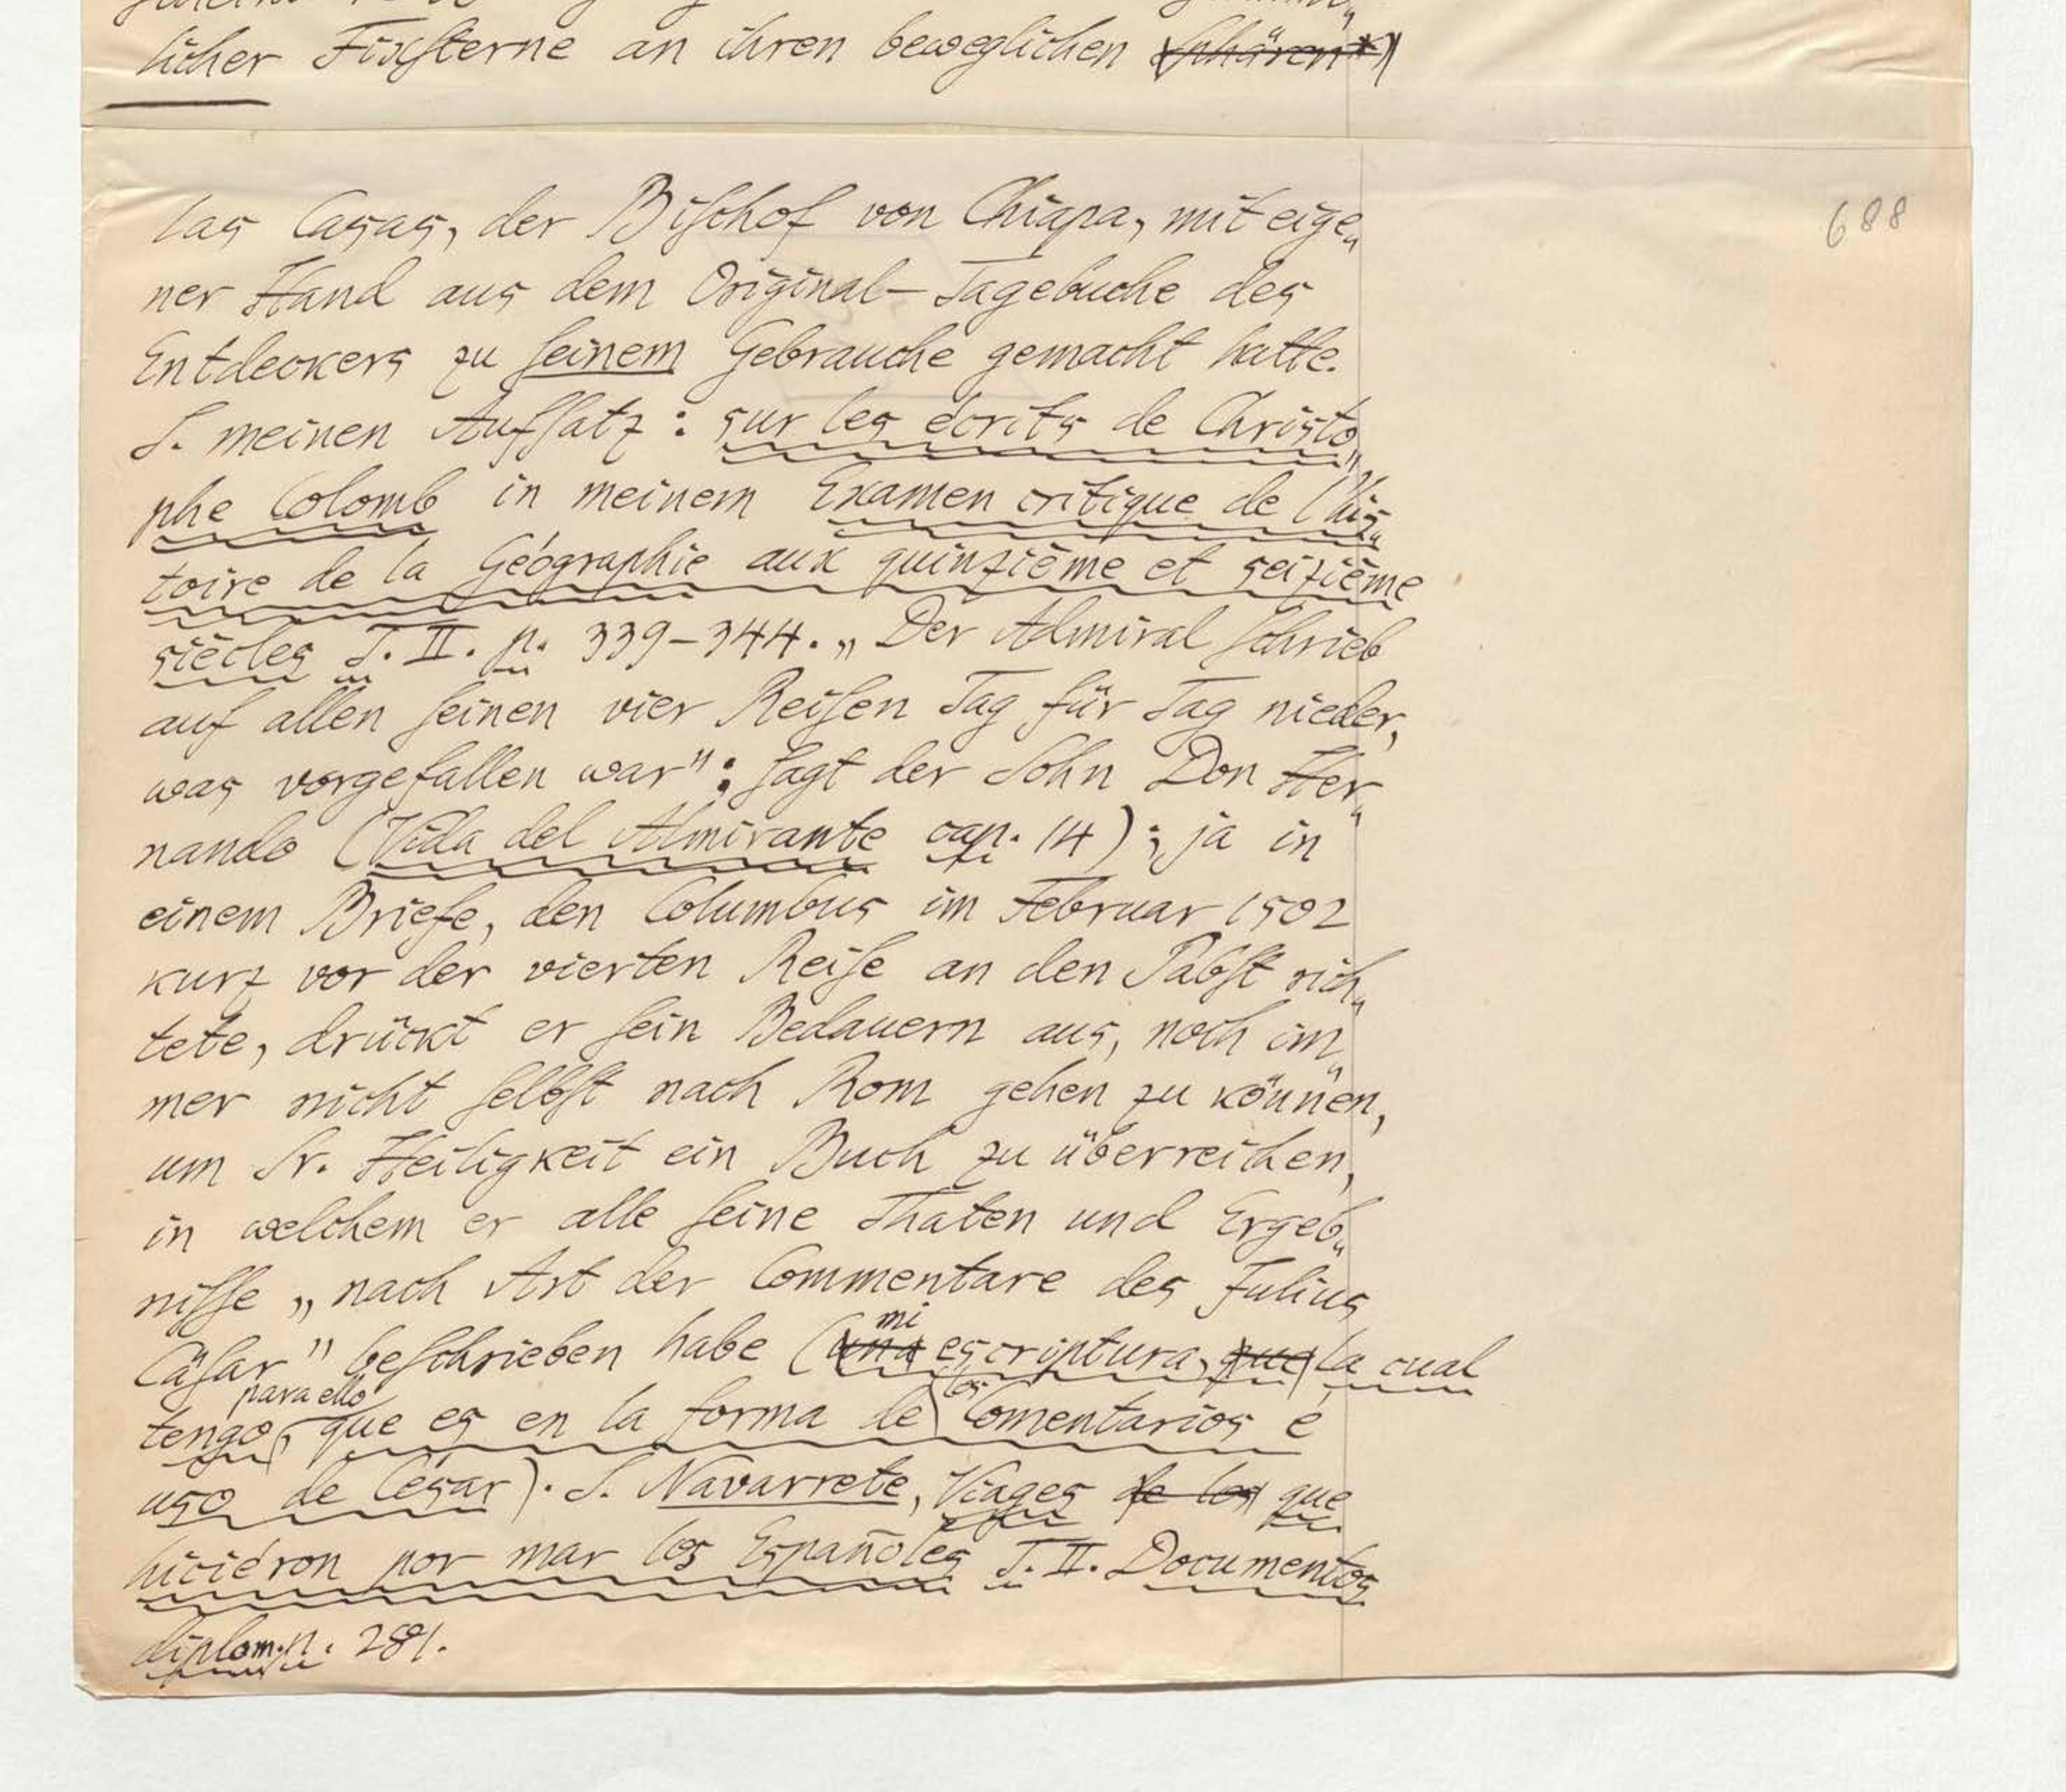 licher Fixsterne an ihren beweglichen Sphären*)
688
las Casas, der Bischof von Chiapa, mit eige„
ner Hand aus dem Original-Tagebuche des
Entdeckers zu seinem Gebrauche gemacht hatte.
S. meinen Aufsatz: sur les écrits de Christo„
phe Colomb in meinem Examen critique de l'his„
toire de la Géographie aux quinzième et seizième
siècles T. II. p. 339–344. „Der Admiral schrieb
auf allen seinen vier Reisen Tag für Tag nieder,
was vorgefallen war": sagt der Sohn Don Her„
nando (Vida del Almirante cap. 14); ja in
einem Briefe, den Columbus im Februar 1502
kurz vor der vierten Reise an den Pabst rich„
tete, drückt er sein Bedauern aus, noch im„
mer nicht selbst nach Rom gehen zu können,
um Sr. Heiligkeit ein Buch zu überreichen,
in welchem er alle seine Thaten und Ergeb„
nisse „nach Art der Commentare des Julius
mi
Cäsar" beschrieben habe (una escriptura, que la cual
para ello los
tengo, que es en la forma de Comentarios é
uso de César). S. Navarrete, Viages de los que
hiciéron por mar los Españoles T. II. Documentos
diplom. p. 281.